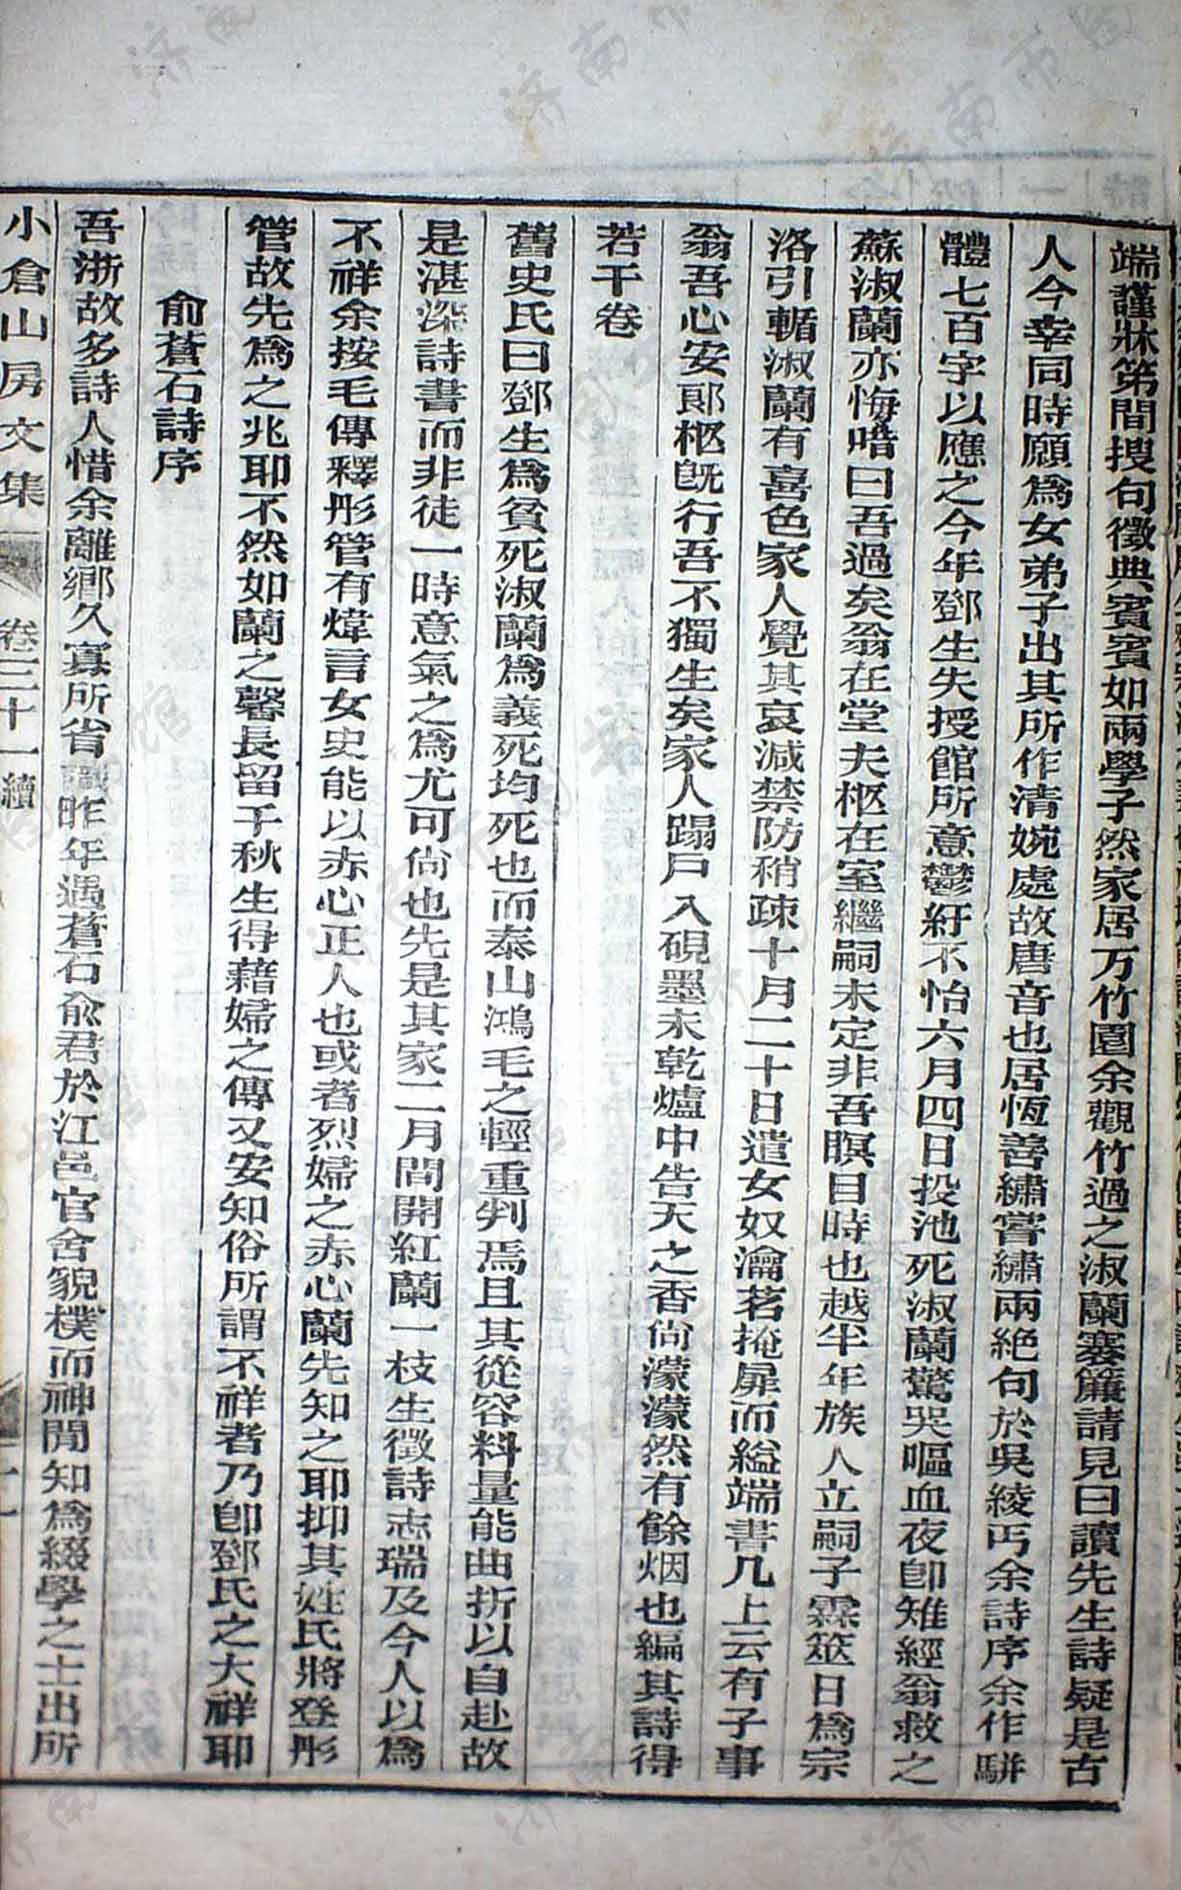 端謹牀笫間搜句徵典賓賓如兩學子然家居万竹園余觀竹過之淑蘭搴簾請見曰讀先生詩疑是古
人今幸同時願爲女弟子出其所作清婉處故唐音也居恆善繡嘗繡兩絕句於吳綾丐余詩序余作駢
體七百字以應之今年鄧生失授館所意鬱紆不怡六月四日投池死淑蘭驚哭嘔血夜卽雉經翁救之
蘇淑蘭亦悔唶曰吾過矣翁在堂夫柩在室繼嗣未定非吾瞑目時也越半年族人立嗣子霖筮日爲宗
洛引輴淑蘭有喜色家人覺其哀減禁防稍疎十月二十日遣女奴瀹茗掩扉而縊端書几上云有子事
翁吾心安郞柩旣行吾不獨生矣家人蹋戶入硯墨未乾爐中告天之香尙濛濛然有餘烟也編其詩得
若干卷
舊史氏曰鄧生爲貧死淑蘭爲義死均死也而泰山鴻毛之輕重判焉且其從容料量能曲折以自赴故
是湛深詩書而非徒一時意氣之爲尤可尙也先是其家二月間開紅蘭一枝生徵詩志瑞及今人以爲
不祥余按毛傳釋彤管有煒言女史能以赤心正人也或者烈婦之赤心蘭先知之耶抑其姓氏將登彤
管故先爲之兆耶不然如蘭之馨長留千秋生得藉婦之傳又安知俗所謂不祥者乃卽鄧氏之大祥耶
俞蒼石詩序
吾浙故多詩人惜余離鄉久寡所省識昨年遇蒼石俞君於江邑官舍貌樸而神閒知爲綴學之士出所
小倉山房文集 卷三十一續